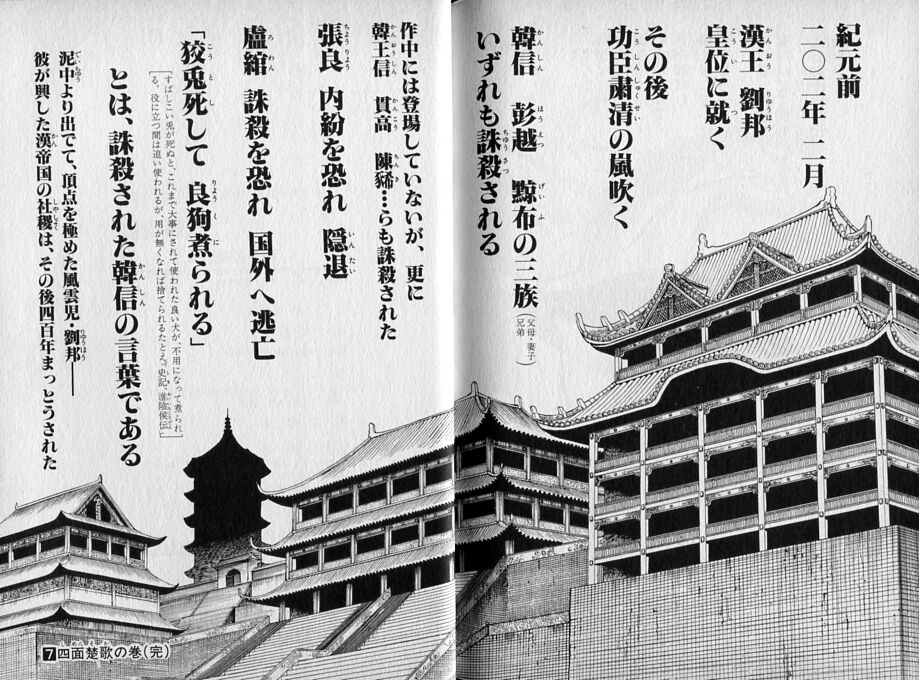 紀元前
二〇二年 二月
漢王 劉邦
皇位に就く
その後
功臣粛清の嵐吹く
韓信 彭越 黥布の三族(父母・妻子・兄弟)
いずれも誅殺される
作中には登場していないが、更に
韓王信 貫高 陳豨…らも誅殺された
張良 内紛を恐れ 隠退
盧綰 誅殺を恐れ 国外へ逃亡
「狡兎死して 良狗煮られる」
[すばしこい兎が死ぬと、これまで大事にされて使われた良い犬が、不用になって煮られ
る。役に立つ間は追い使われるが、用が無くなれば捨てられるたとえ。史記、淮陰侯伝]
とは、誅殺された韓信の言葉である
泥中より出でて、頂点を極めた風雲児・劉邦――
彼が興した漢帝国の社稷は、その後四百年まっとうされた
7四面楚歌の巻(完)